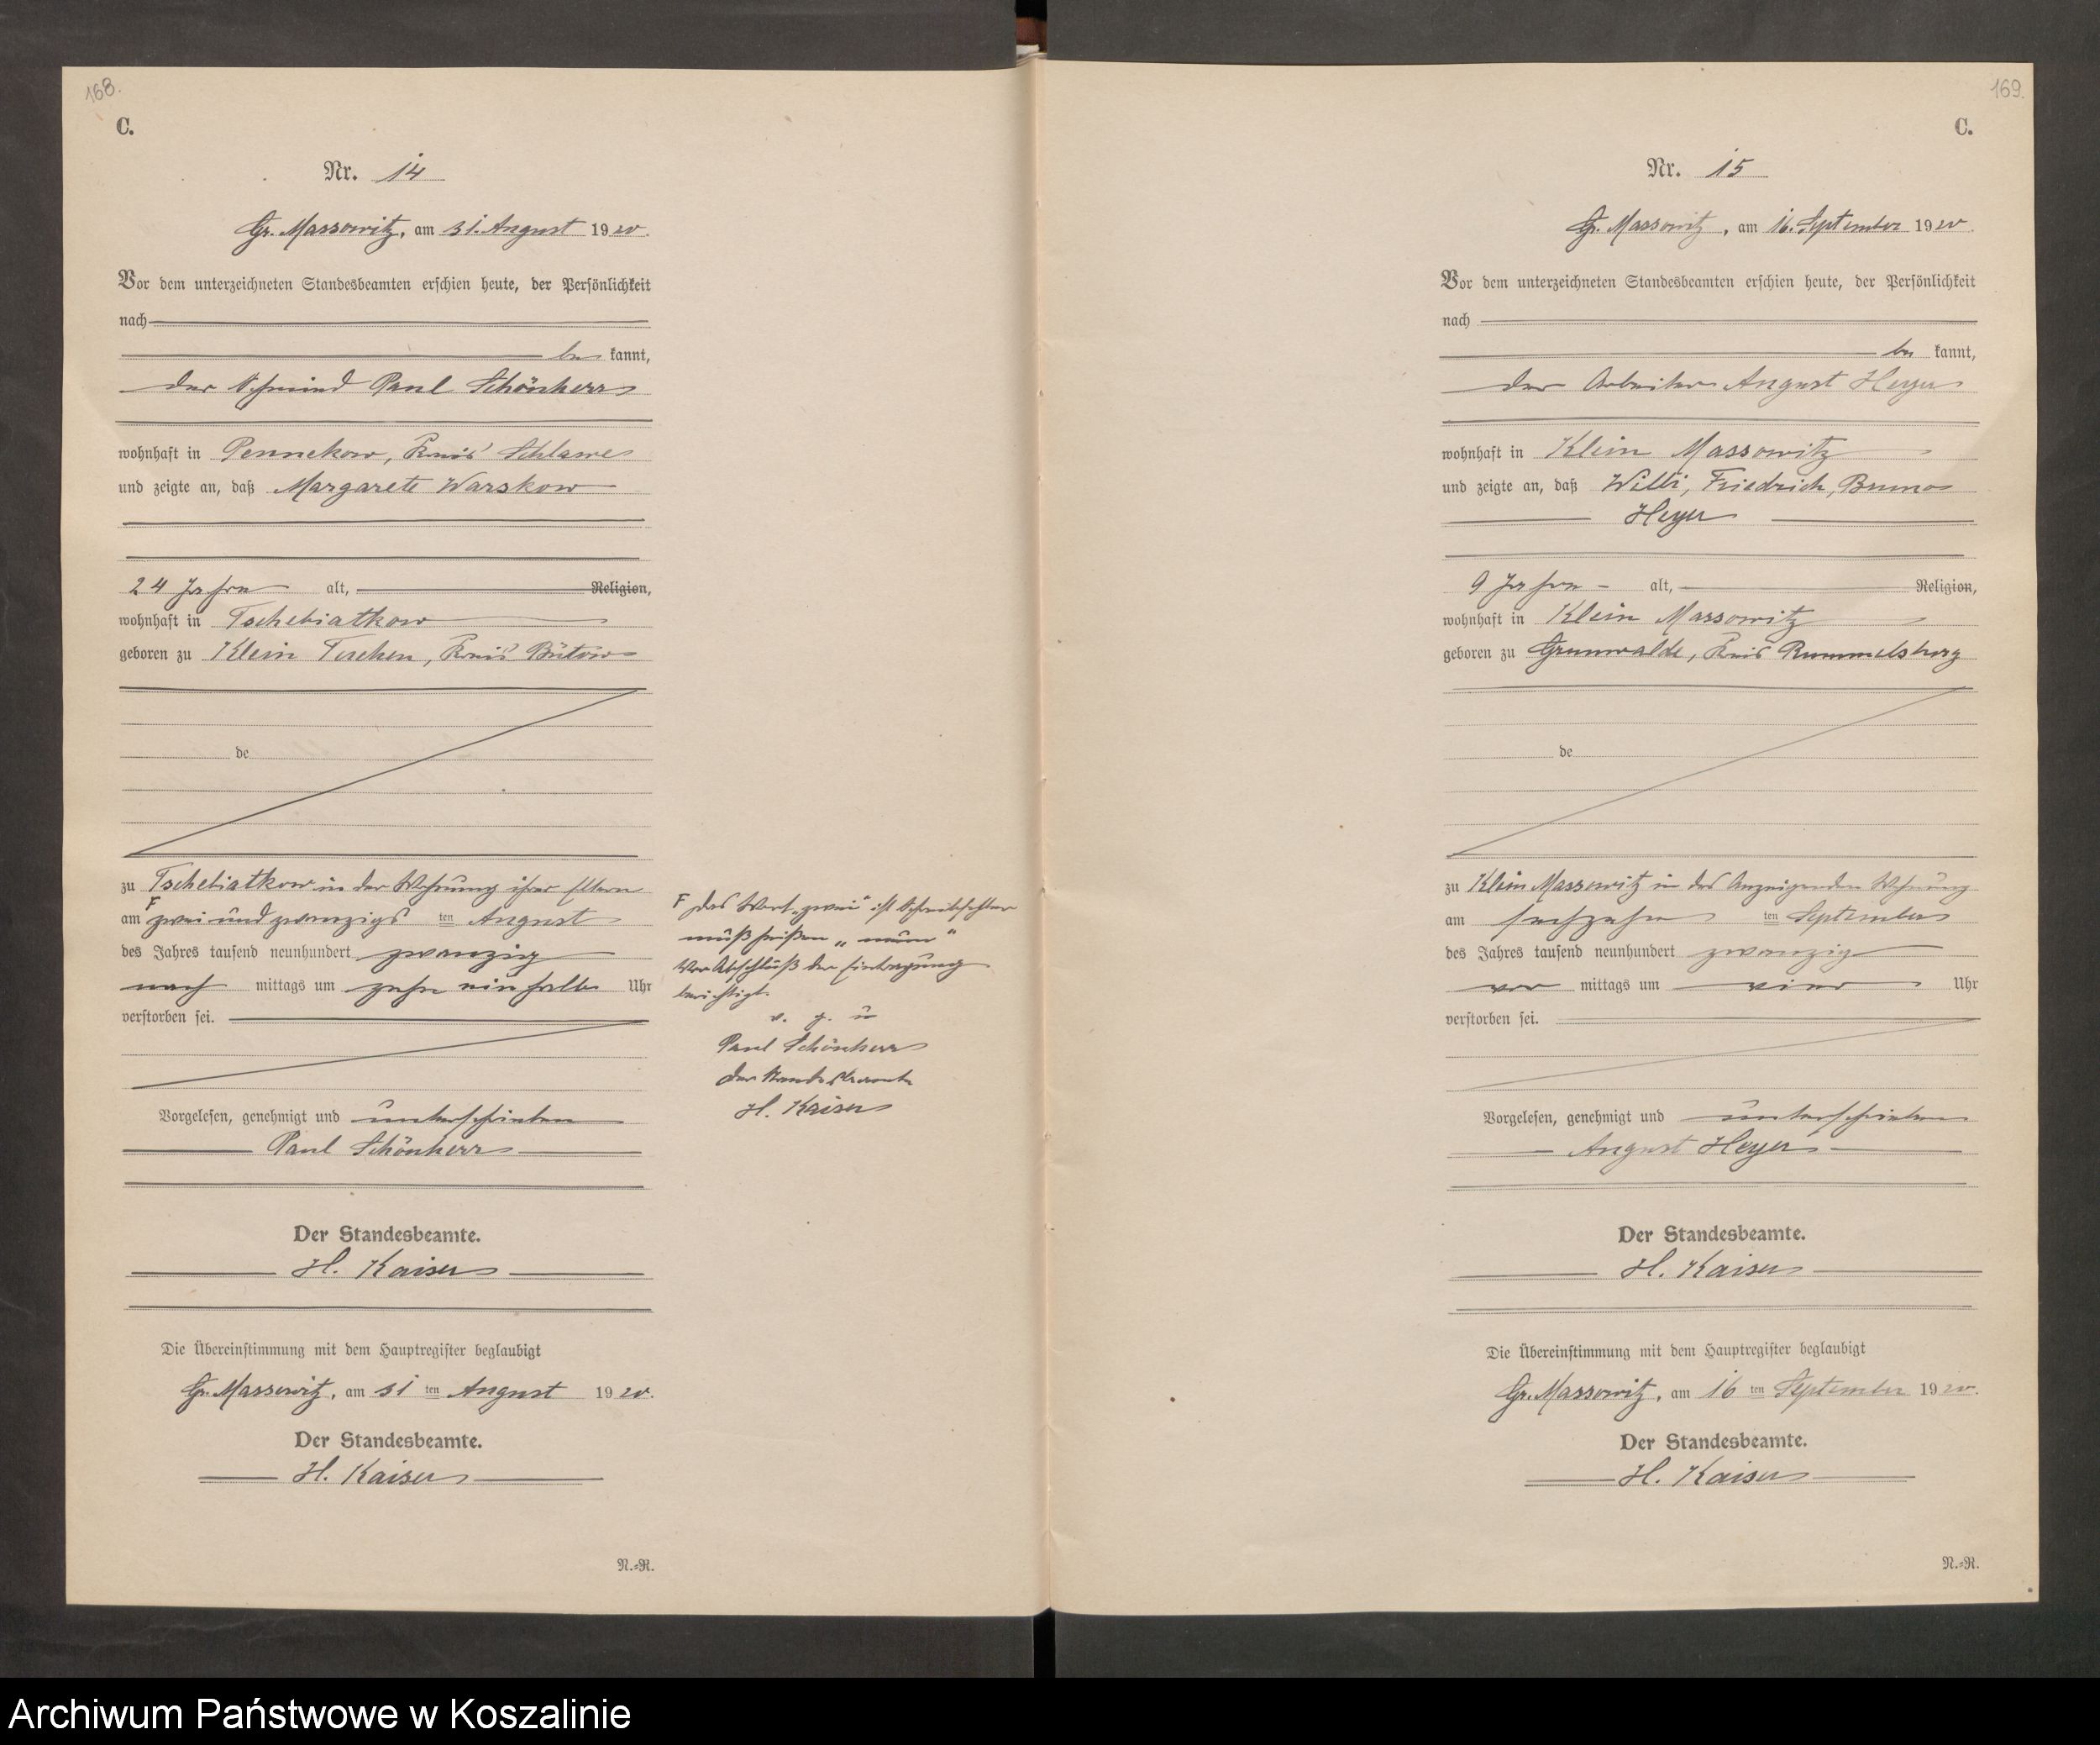 168.
C.
Nr. 14
Gr. Massowitz, am 31. August 1920.
Vor dem unterzeichneten Standesbeamten erschien heute, der Persönlichkeit
nach
be kannt,
der Schmied Paul Schönherr
wohnhaft in Pennekow, Kreis Schlawe
und zeigte an, daß Margarete Warskow
24 Jahre alt, Religion,
wohnhaft in Tschebiatkow
geboren zu Klein Tuchen, Kreis Bütow
de
zu Tschebiatkow in der Wohnung ihrer Eltern
am F zwei und zwanzigs ten August
des Jahres tausend neunhundert zwanzig
nach mittags um zehn einhalb Uhr
verstorben sei.
Vorgelesen, genehmigt und unterschrieben
Paul Schönherr
Der Standesbeamte.
H. Kaiser
Die Übereinstimmung mit dem Hauptregister beglaubigt
Gr. Massowitz, am 31 ten August 1920.
Der Standesbeamte.
H. Kaiser
N.=R.
F Das Wort „zwei“ ist Schreibfehler
muß heißen „neun“
Vor Abschluß der Eintragung
berichtigt.
v. g. u
Paul Schönherr
Der Standesbeamte
H. Kaiser
169.
C.
Nr. 15
Gr. Massowitz, am 16. September 1920.
Vor dem unterzeichneten Standesbeamten erschien heute, der Persönlichkeit
nach
be kannt,
der Arbeiter August Heyer
wohnhaft in Klein Massowitz
und zeigte an, daß Willi, Friedrich, Bruno
Heyer
9 Jahre alt, Religion,
wohnhaft in Klein Massowitz
geboren zu Grunwalde, Kreis Rummelsburg
de
zu Klein Massowitz in des Anzeigenden Wohnung
am sechzehn ten September
des Jahres tausend neunhundert zwanzig
vor mittags um vier Uhr
verstorben sei.
Vorgelesen, genehmigt und unterschrieben
August Heyer
Der Standesbeamte.
H. Kaiser
Die Übereinstimmung mit dem Hauptregister beglaubigt
Gr. Massowitz, am 16 ten September 1920.
Der Standesbeamte.
H. Kaiser
N.=R.
Archiwum Państwowe w Koszalinie